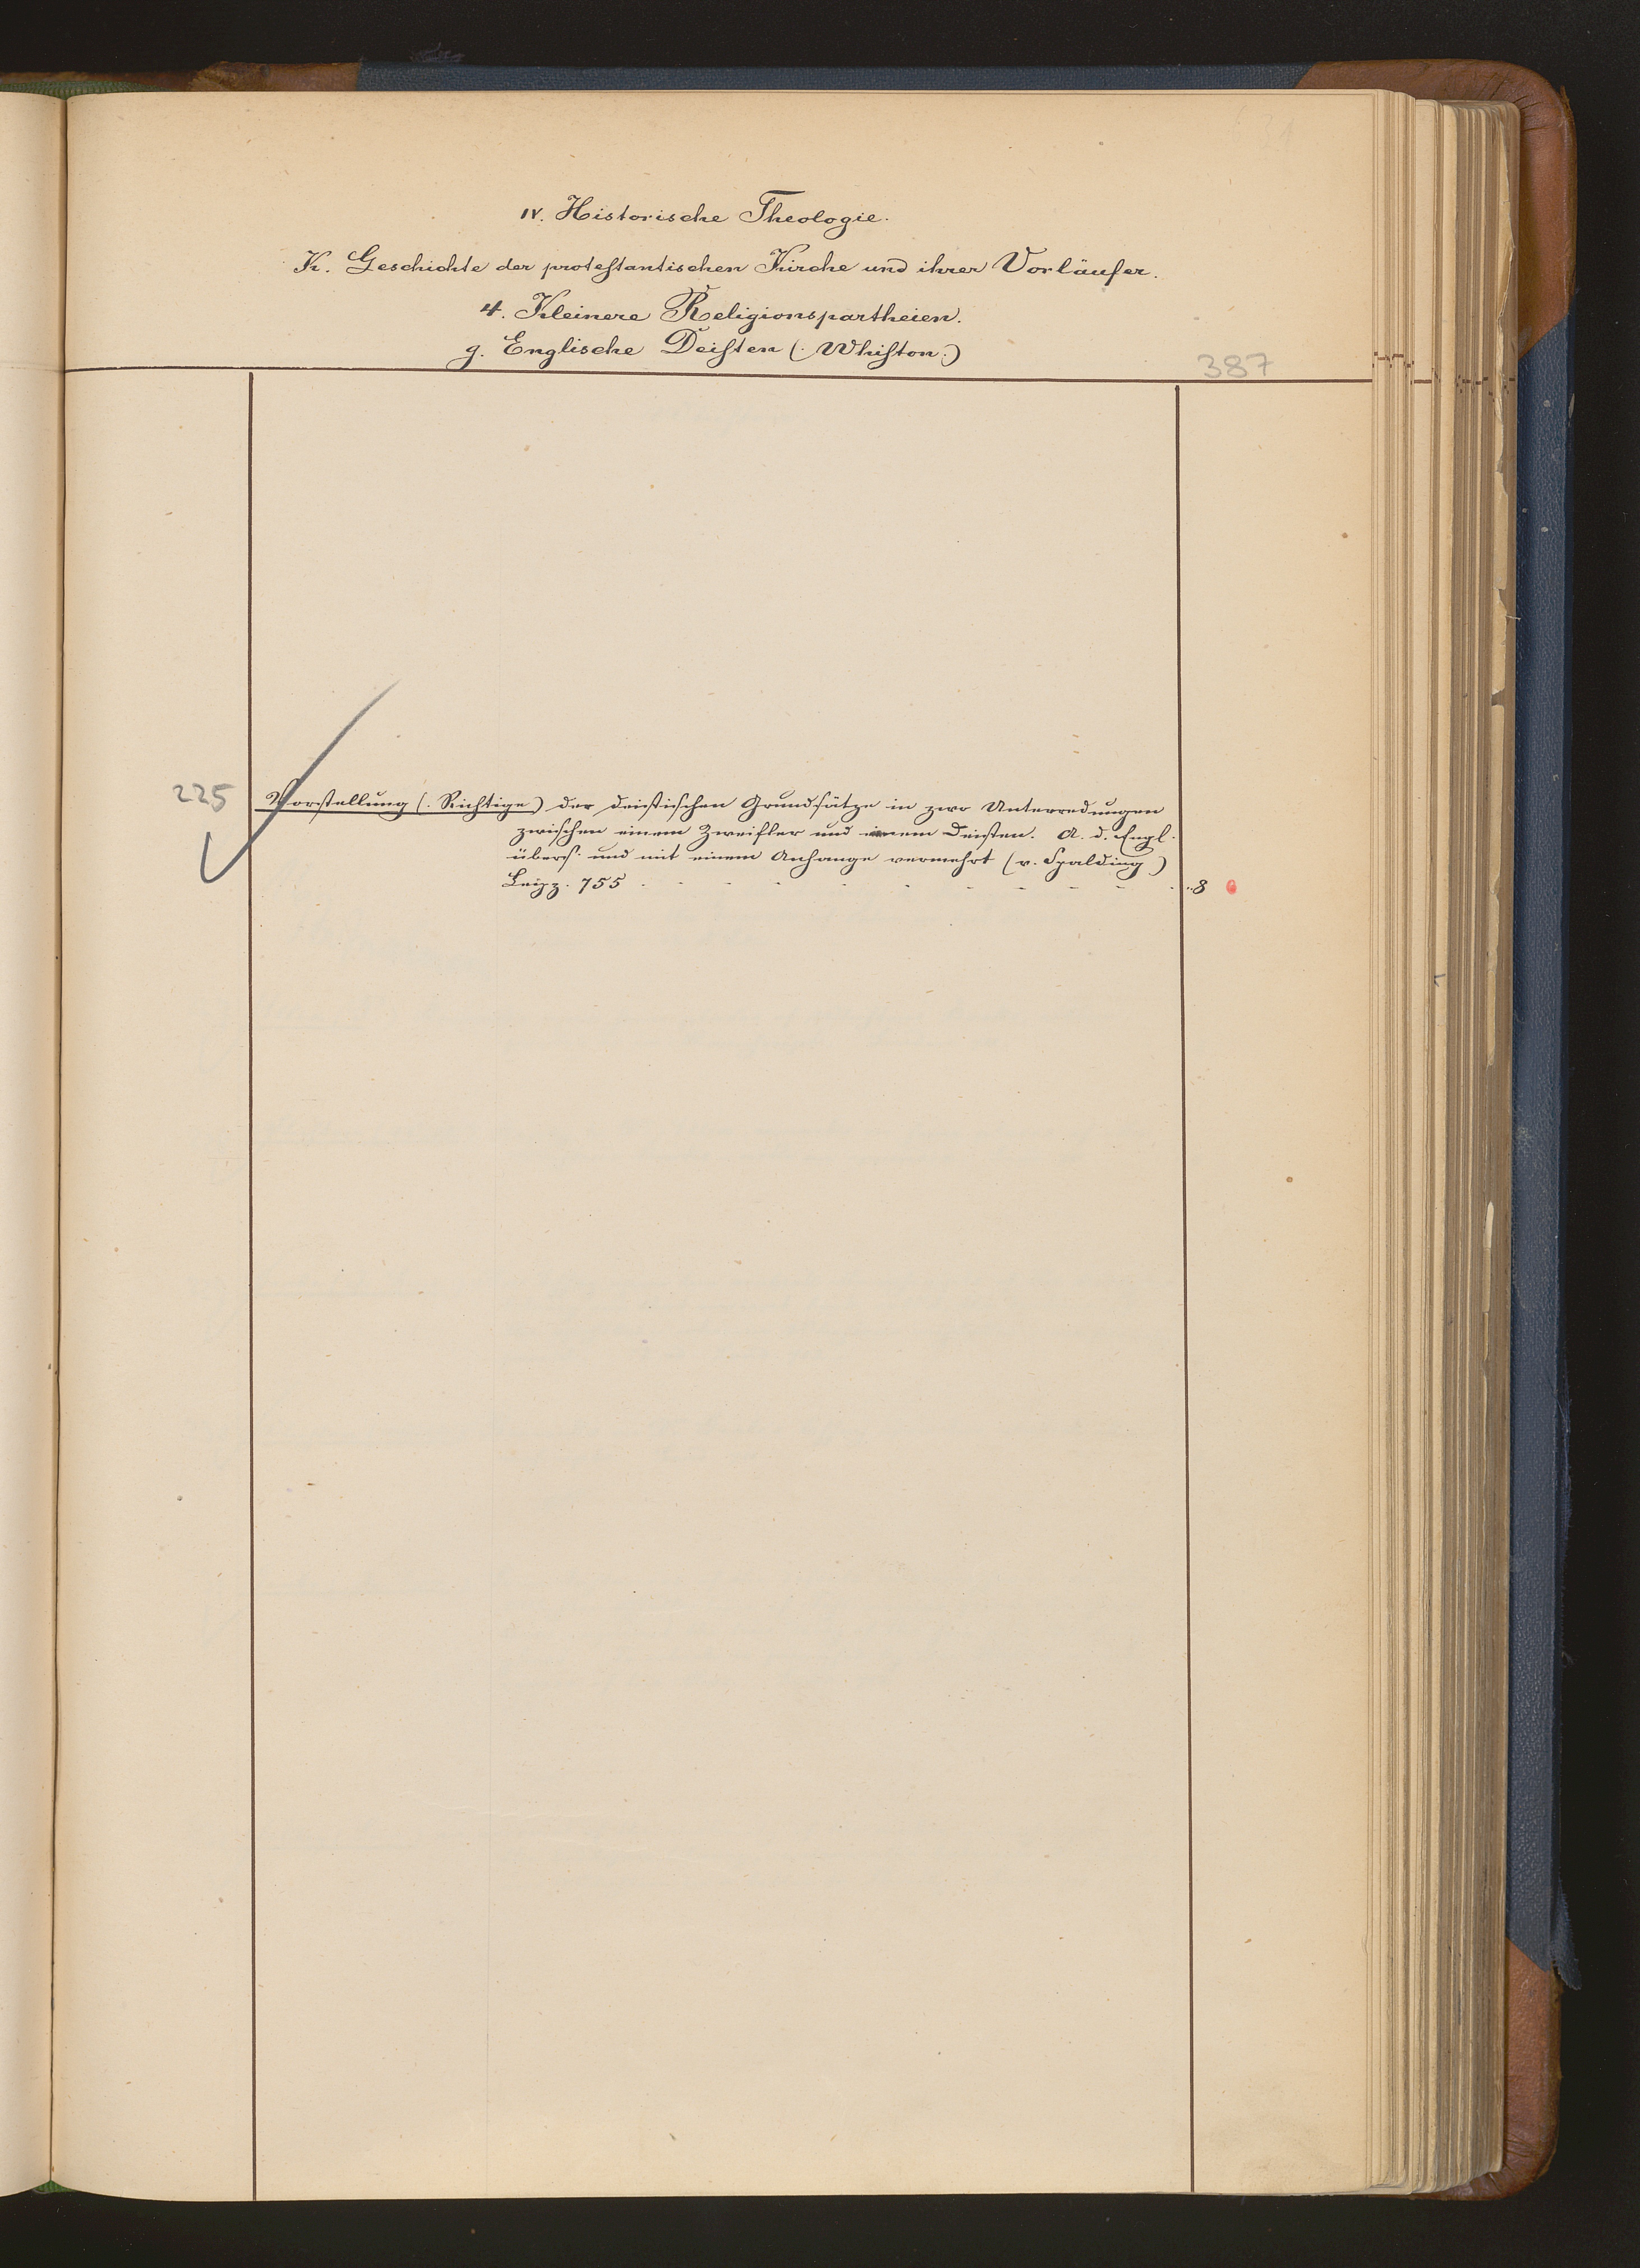 IV. Historische Theologie.
K. Geschichte der protestantischen Kirche und ihrer Vorläufer.
4. Kleinere Religionspartheien.
g. Englische Deisten (: Whiston :)
387
225
Vorstellung (: Richtige :) der deistischen Grundsätze in zwo Unterredungen
zwischen einem Zweifler und einem Deisten. A. d. Engl.
übers. und mit einem Anhange vermehrt (v. Spalding)
Leipz. 755 . - - - - . . - - - - . 8